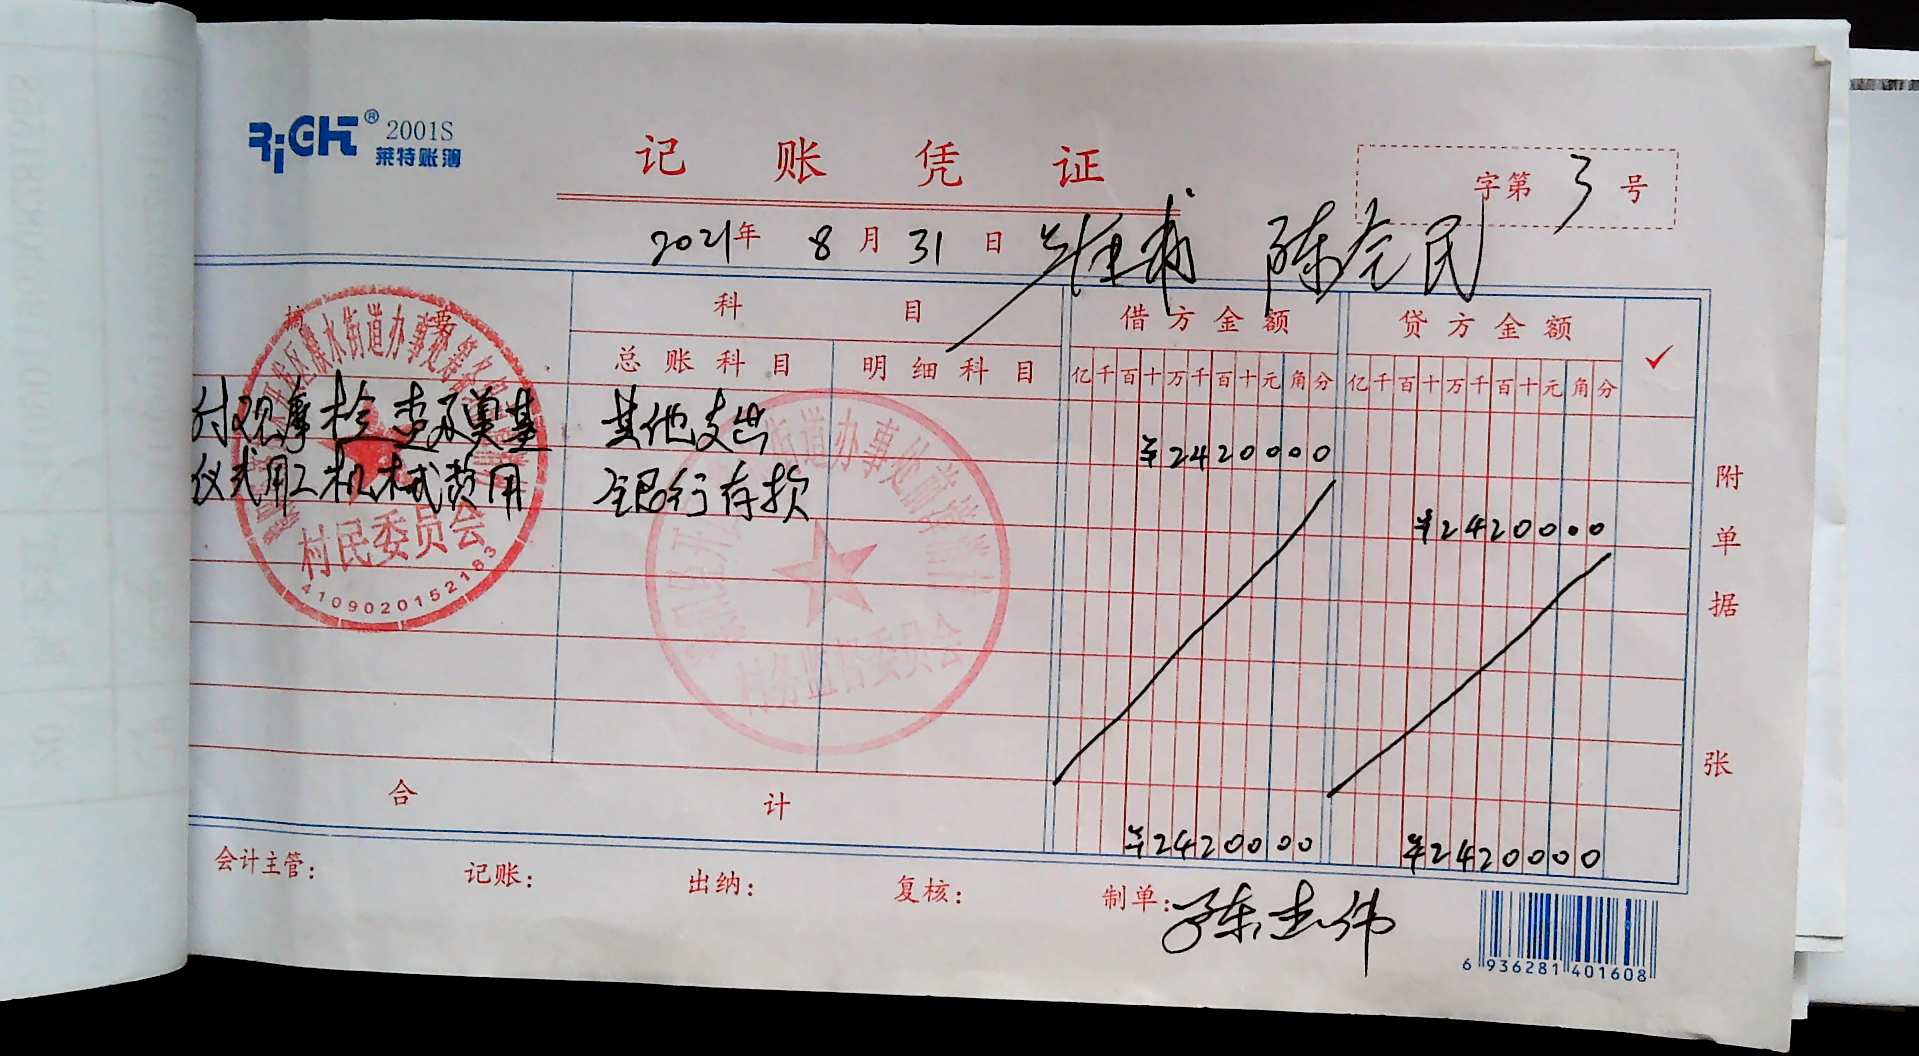 RiGHT® 2001S
莱特账簿
记账凭证
字第 3 号
2021年 8月31日
陈
科目
借方金额
贷方金额
✓
总账科目 明细科目
亿千百十万千百十元角分
亿千百十万千百十元角分
付观摩检查及奠基 其他支出 ¥2420000
仪式用工机械费用 银行存款 ¥2420000
村民委员会
4109020152183
街道办事处
村务监督委员会
附单据 张
合计 ¥2420000 ¥2420000
会计主管: 记账: 出纳: 复核: 制单: 陈志伟
6 936281 401608